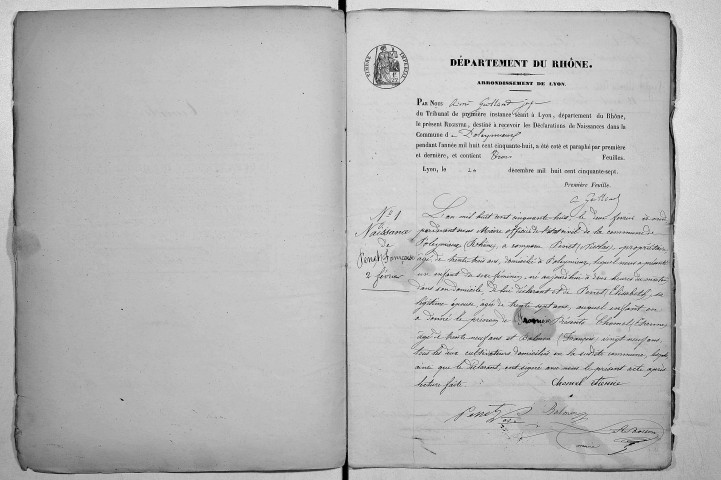 DÉPARTEMENT DU RHÔNE.
ARRONDISSEMENT DE LYON.
PAR NOUS
du Tribunal de première instance séant à Lyon, département du Rhône,
le présent REGISTRE, destiné à recevoir les Déclarations de Naissances dans la
Commune d e Poleymieux
pendant l'année mil huit cent cinquante-huit, a été coté et paraphé par première
et dernière, et contient Trois Feuilles.
Lyon, le 20 décembre mil huit cent cinquante-sept.
Première Feuille.
N° 1
Naissance
de
Penet Françoise
2 février
L'an mil huit cent cinquante huit, le deux février à midi
pardevant nous Maire officier de l'état civil de la commune de
Poleymieux (Rhône), a comparu Penet, Nicolas, propriétaire
âgé de trente trois ans, domicilié à Poleymieux, lequel nous a présenté
un enfant du sexe féminin, né aujourd'hui à deux heures du matin
dans son domicile, de lui déclarant et de Penet, Elisabeth, sa
légitime épouse, âgée de trente sept ans, auquel enfant on
a donné le prénom de Présents Chamel, Etienne,
âgé de trente neuf ans et Balmon (François) vingt neuf ans,
tous les deux cultivateurs domiciliés en la susdite commune, lesquels
ainsi que le déclarant, ont signé avec nous le présent acte après
lecture faite.
Chamel Etienne
Penet
maire